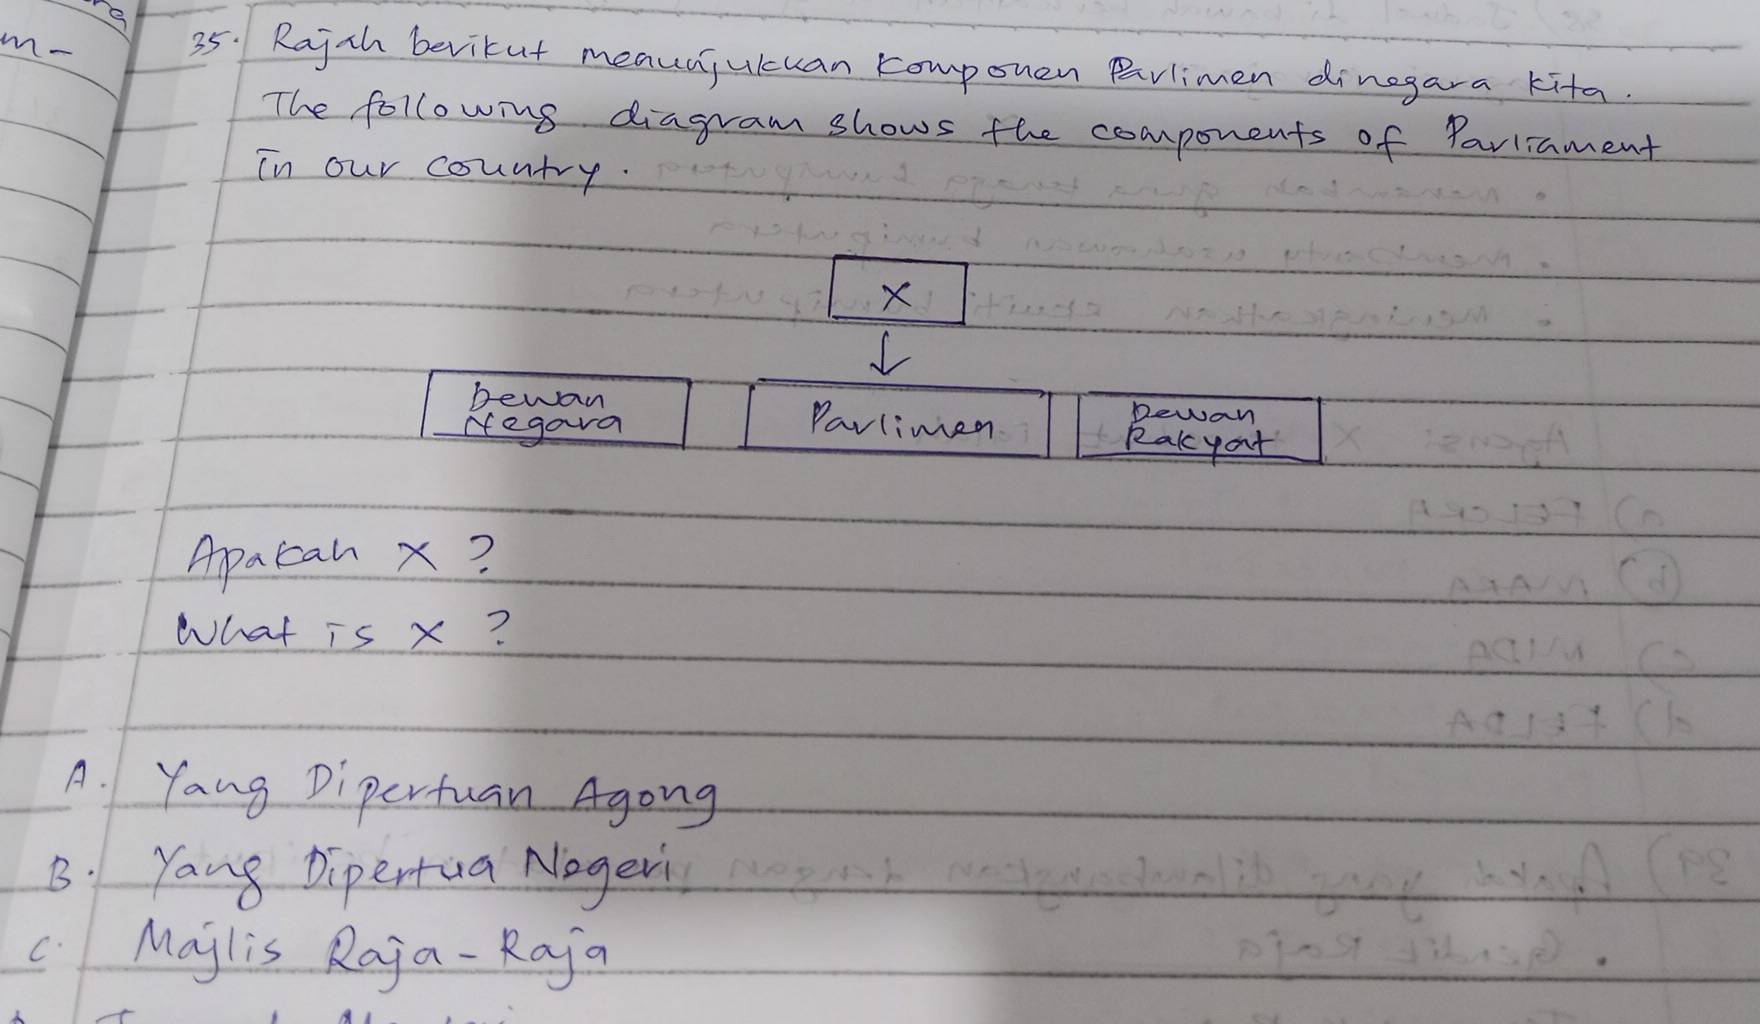 35. Rajah berikut menunjukkan komponen Parlimen dinegara kita.
The following diagram shows the components of Parliament
in our country.
X
Dewan
Negara
Parlimen
Dewan
Rakyat
Apakah X ?
What is X ?
A. Yang Dipertuan Agong
B. Yang Dipertua Negeri
C. Majlis Raja-Raja